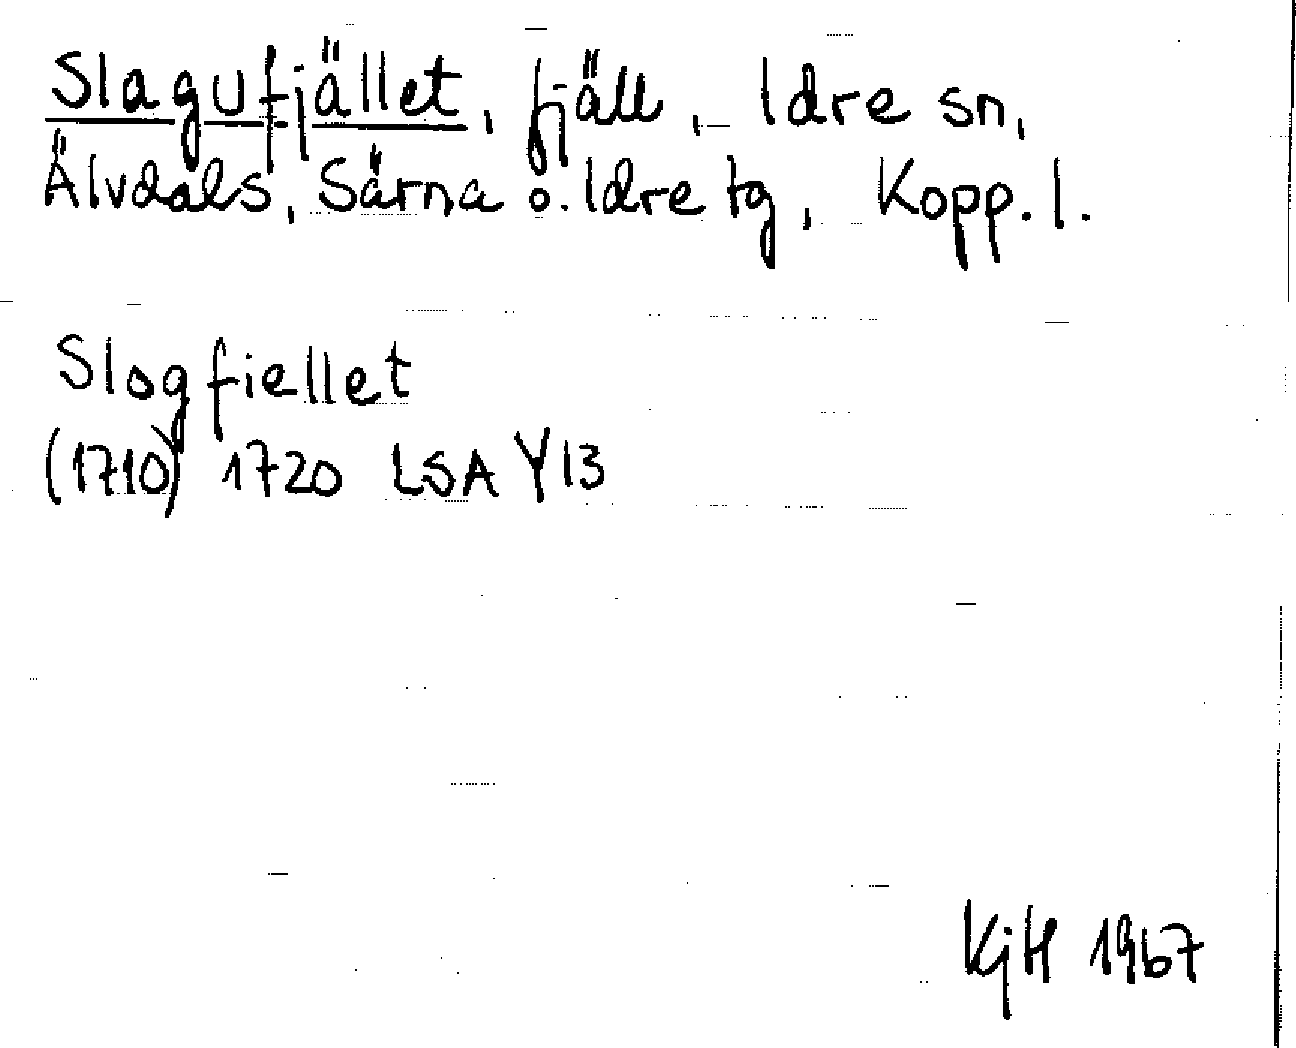 Slagufjället, fjäll, Idre sn,
Älvdals, Särna o. Idre tg, Kopp. l.
Slogfiellet
(1710) 1720 LSA Y13
KjH 1967